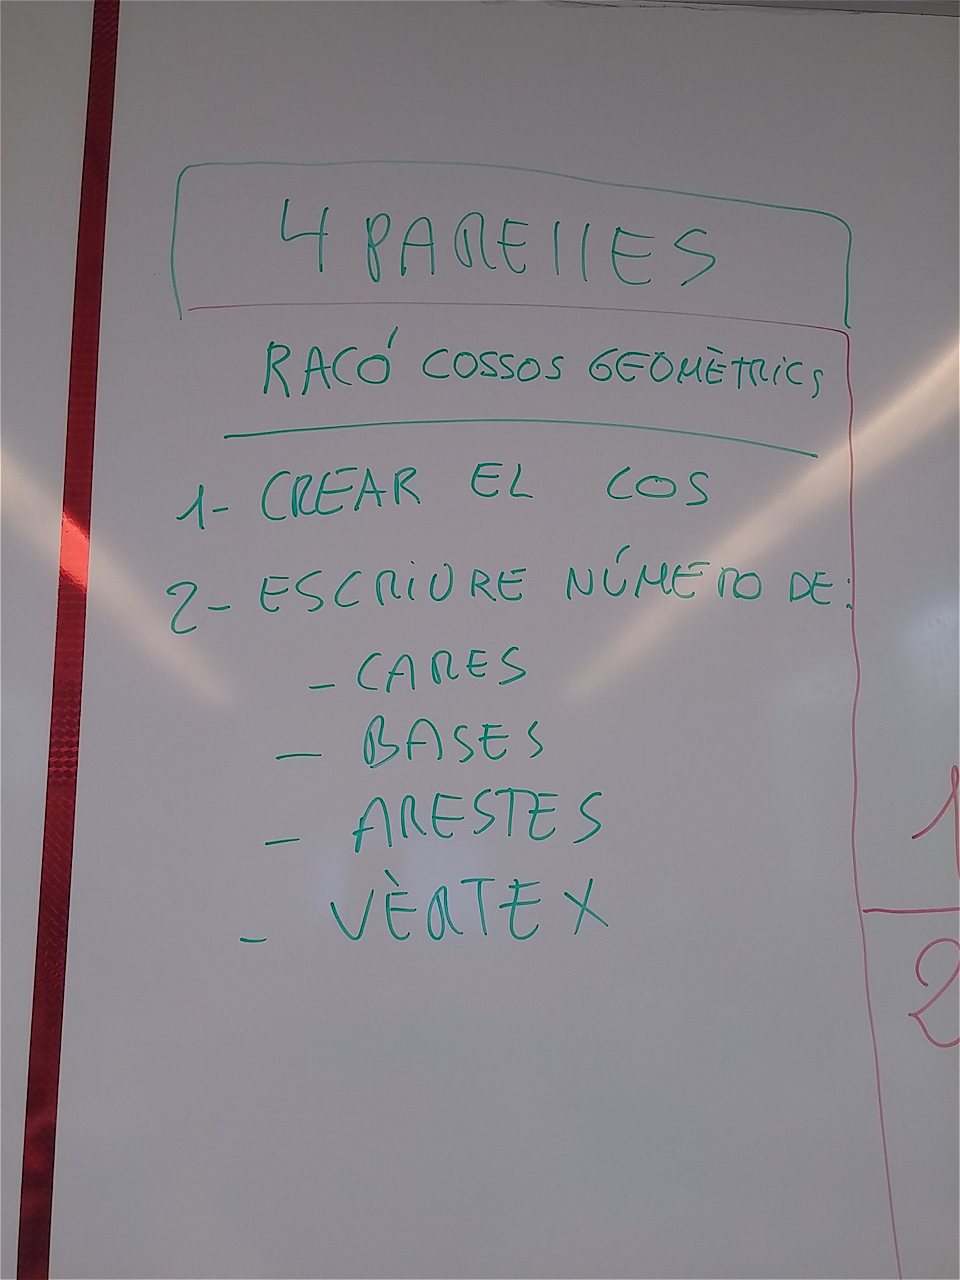 4 PARELLES
RACÓ COSSOS GEOMÈTRICS
1- CREAR EL COS
2- ESCRIURE NÚMERO DE:
- CARES
- BASES
- ARESTES
- VÈRTEX
1
2